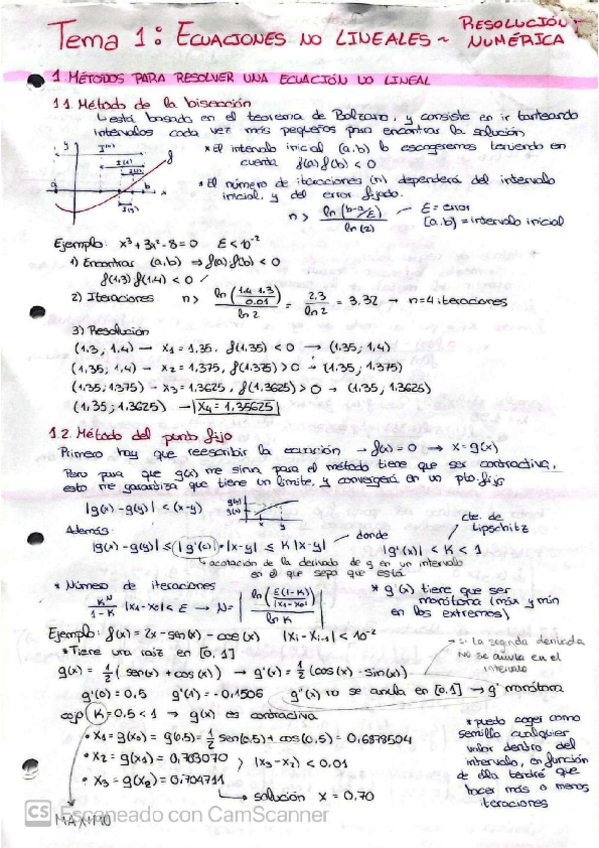 Tema 1: ECUACIONES NO LINEALES ~ RESOLUCIÓN NUMÉRICA
1 MÉTODOS PARA RESOLVER UNA ECUACIÓN NO LINEAL
1.1. Método de la bisección
↳ está basado en el teorema de Bolzano, y consiste en ir tanteando
intervalos cada vez más pequeños para encontrar la solución
* El intervalo inicial (a,b) lo escogeremos teniendo en
cuenta f(a)·f(b) < 0
* El número de iteraciones (n) dependerá del intervalo
inicial, y del error fijado.
n > ln(b-a/E) / ln(2)
E = error
[a,b] = intervalo inicial
Ejemplo: x³+3x²-8=0 E<10⁻²
1) Encontrar (a,b) ⇒ f(a)·f(b) < 0
f(1,3)·f(1,4) < 0 ✓
2) Iteraciones n > ln(1.4-1.3 / 0.01) / ln 2 = 2,3 / ln 2 = 3,32 → n=4 iteraciones
3) Resolución
(1.3, 1,4) → x₁ = 1,35, f(1,35) < 0 → (1.35, 1,4)
(1,35, 1,4) → x₂ = 1,375, f(1,375) > 0 → (1.35, 1,375)
(1.35, 1.375) → x₃ = 1,3625, f(1,3625) > 0 → (1.35, 1,3625)
(1,35, 1,3625) → x₄ = 1,35625
1.2. Método del punto fijo
Primero hay que reescribir la ecuación → f(x) = 0 → x = g(x)
Pero para que g(x) me sirva para el método tiene que ser contractiva,
esto me garantiza que tiene un límite, y convergerá en un pto. fijo
|g(x) - g(y)| < (x-y)
g(x)
g(y)
x y
Además:
|g(x) - g(y)| ≤ |g'(c)|·|x-y| ≤ K|x-y|
donde
|g'(x)| < K < 1
cte. de Lipschitz
↳ acotación de la derivada de g en un intervalo
en el que sepa que está
* Número de iteraciones
Kᴺ / 1-K |x₁-x₀| < E → N = | ln(E(1-K) / |x₁-x₀|) / ln K |
* g'(x) tiene que ser
monótona (máx y mín
en los extremos)
Ejemplo: f(x) = 2x - sen(x) - cos(x) |xᵢ - xᵢ₋₁| < 10⁻²
* Tiene una raíz en [0,1]
→ si la segunda derivada
NO se anula en el
intervalo
g(x) = 1/2 (sen(x) + cos(x)) → g'(x) = 1/2 (cos(x) - sin(x))
g'(0) = 0,5 g'(1) = -0,1506 g''(x) no se anula en [0,1] → g' monótona
cojo K = 0.5 < 1 → g(x) es contractiva
• x₁ = g(x₀) = g(0.5) = 1/2 sen(0.5) + cos(0.5) = 0.6878504
• x₂ = g(x₁) = 0,703070 > |x₃-x₂| < 0.01
• x₃ = g(x₂) = 0.704711
↳ solución x = 0,70
* puedo coger como
semilla cualquier
valor dentro del
intervalo, en función
de ella tendré que
hacer más o menos
iteraciones
MÁXIMO
CS Escaneado con CamScanner